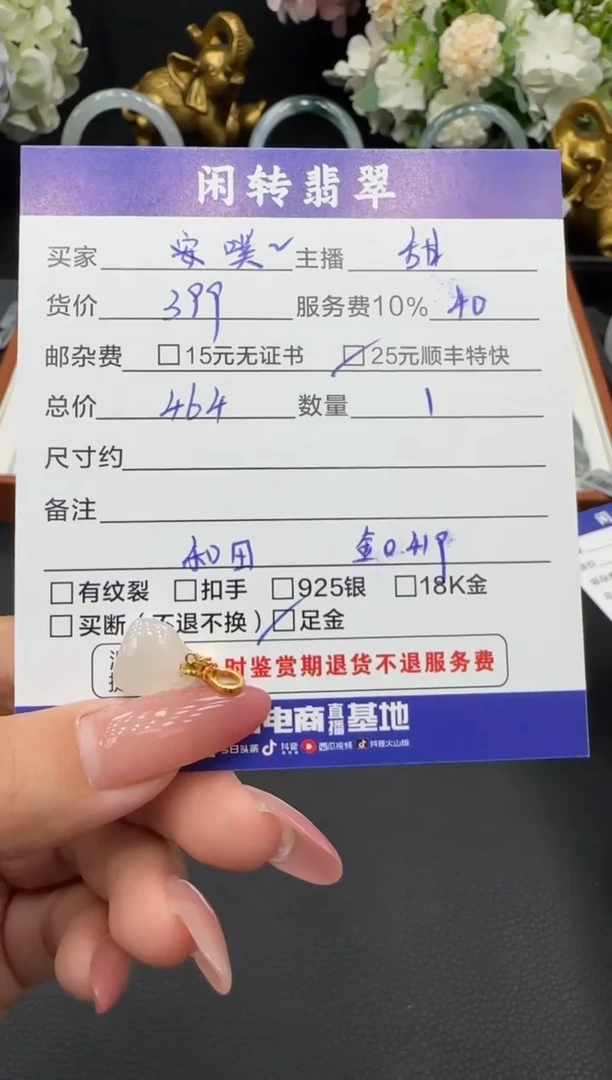 闲转翡翠
买家 安噗~ 主播 甜
货价 399 服务费10% 40
邮杂费 □15元无证书 ☑25元顺丰特快
总价 464 数量 1
尺寸约
备注
和田 金0.41g
□有纹裂 □扣手 □925银 □18K金
□买断(不退不换) ☑足金
时鉴赏期退货不退服务费
电商直播基地
今日头条 抖音 西瓜视频 抖音火山版